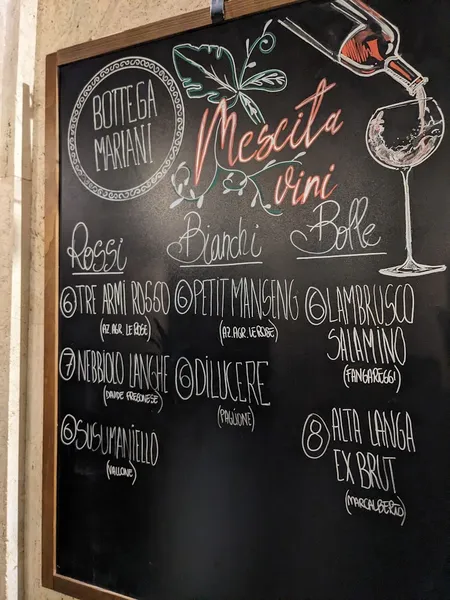 BOTTEGA
MARIANI
Mescita
vini
Rossi
6 TRE ARMI ROSSO
(AZ. AGR. LE ROSE)
7 NEBBIOLO LANGHE
(DAVIDE FREGONESE)
6 SUSUMANIELLO
(VALLONE)
Bianchi
6 PETIT MANSENG
(AZ. AGR. LE ROSE)
6 DILUCERE
(PAGLIONE)
Bolle
6 LAMBRUSCO
SALAMINO
(FANGAREGGI)
8 ALTA LANGA
EX BRUT
(MARCALBERTO)